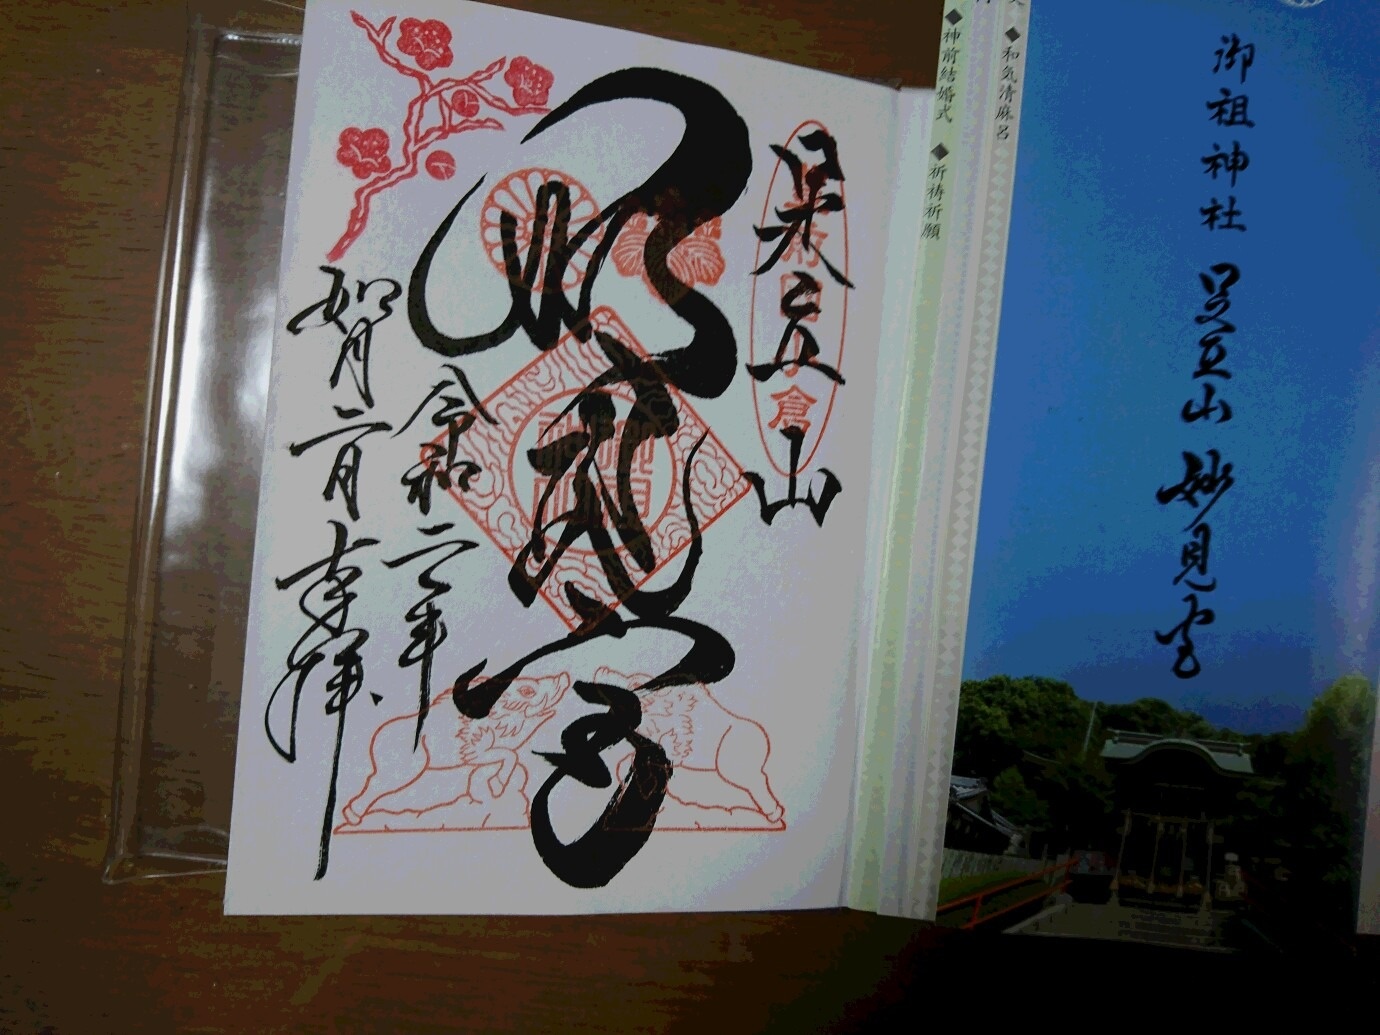 御祖神社 足立山 妙見宮
◆和気清麻呂
◆神前結婚式 ◆祈祷祈願
足立山
妙見宮
令和二年
如月二月 奉拝